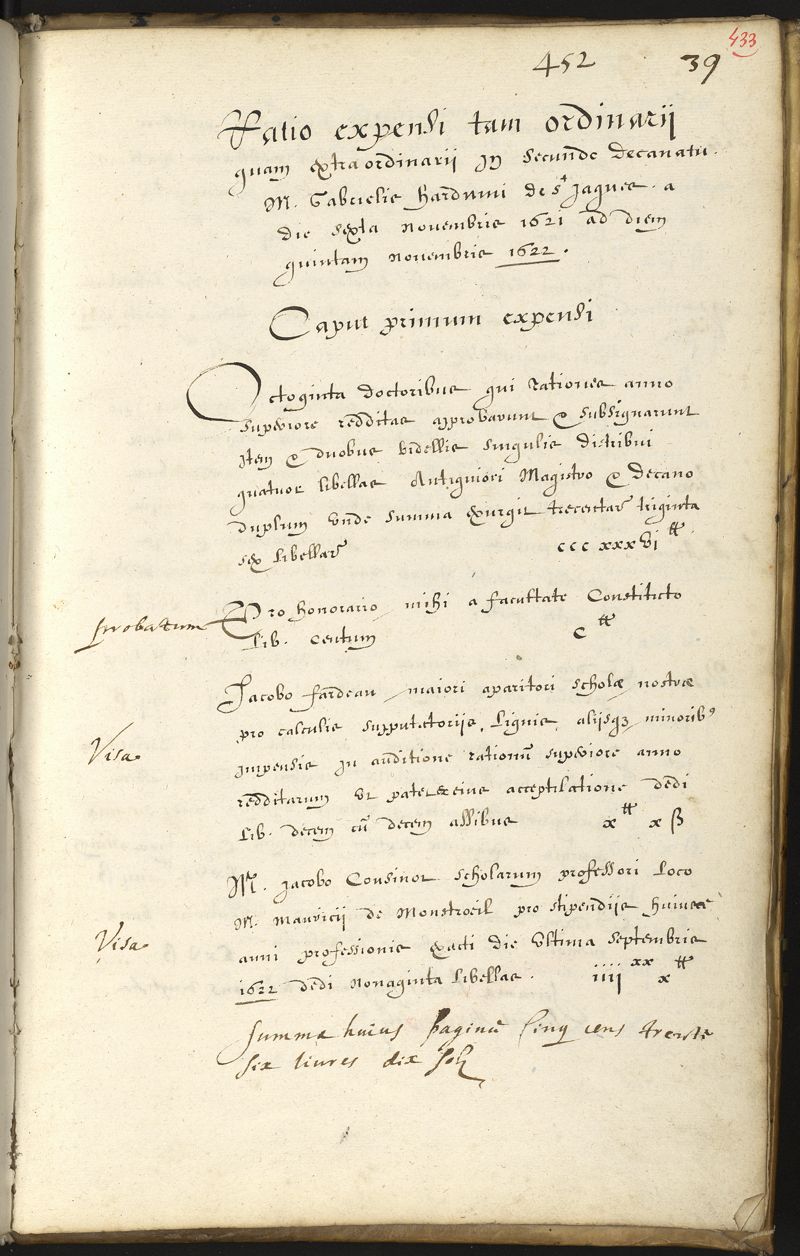 433
452 39
Ratio expensi tam ordinarij
quam extraordinarij in secundo decanatu
M. Gabrielis harduini de st Jaques. a
die sexta novembris 1621 ad diem
quintam novembris 1622.
Caput primum expensi
Octoginta doctoribus qui rationes anno
superiore redditas approbarunt & subsignarunt
Item & duobus bidellis singulis distribui
quatuor libellas Antiquiori Magistro & decano
duplum unde summa exurgit trecentar triginta
sex libellar ccc xxxvi ᵗᵗ
probatum Pro honorario mihi a facultate Constituto
Lib. centum C ᵗᵗ
Jacobo fardeau maiori aparitori scholæ nostræ
pro calculis supputatorijs, lignis, alijsqz minorib9
Visa. impensis in auditione rationũ superiore anno
redditarum ut patet ex eius acceptilatione dedi
Lib. decem cũ decem assibus x ᵗᵗ x ß
M. Jacobo Cousinot scholarum professori loco
M. Mauricij de Monstroeil pro stipendijs huiusce
Visa. anni professionis exacti die ultima septembris
1622 dedi Nonaginta libellas. iiii xx x ᵗᵗ
Summa huius paginæ Cinq cens trente
six livres dix solz